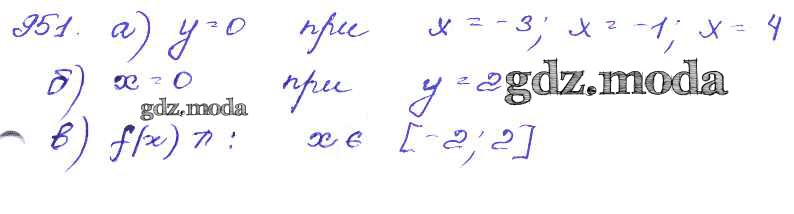 951. а) y = 0 при x = -3; x = -1; x = 4
б) x = 0 при y = 2 gdz.moda
gdz.moda
в) f(x) ↗ : x ∈ [-2; 2]